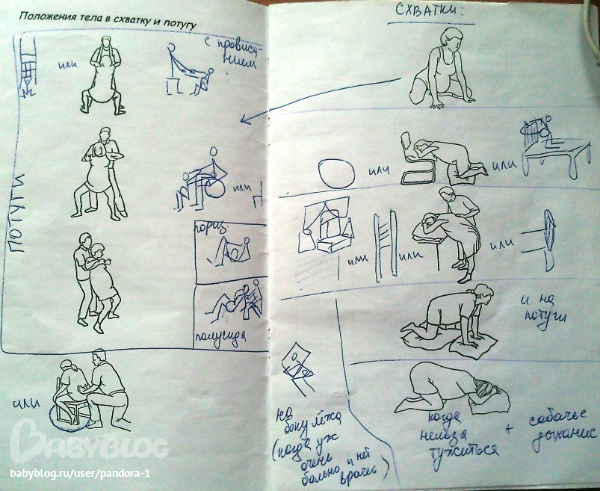 Положения тела в схватку и потугу
или
с провиса-
нием
ПОТУГИ
или
полусидя
или
BABYBLOG
babyblog.ru/user/pandora-1
СХВАТКИ:
или
или
или
или
или
и на
потуги
на
боку лёжа
(когда уж
очень
больно, и нет
врача)
когда
нельзя
тужиться
+
собачье
дыхание